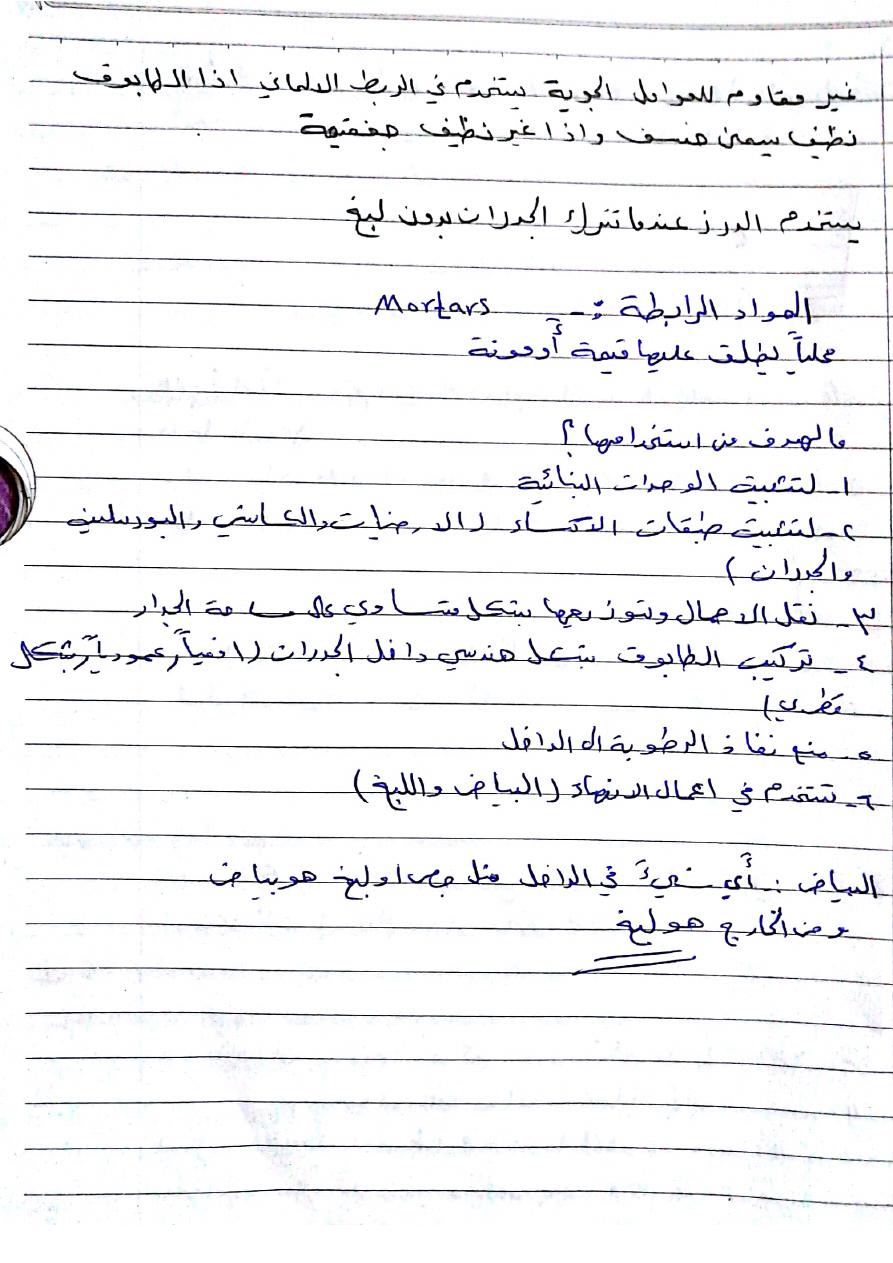 غير مقاوم للعوامل الجوية يستخدم في الربط الالماني اذا الطابوق
نظيف يسمى جنسف واذا غير نظيف جفقيمة
يستخدم الدرز عندما تترك الجدران بدون لبخ
المواد الرابطة :- Mortars
محلياً يطلق عليها قيمة أو مونة
مالهدف من استخدامها؟
١- لتثبيت الوحدات البنائية
٢- لتثبيت طبقات الاكساء (الارضيات والكاشي والبورسلين
والجدران)
٣- نقل الاحمال وتوزيعها بشكل متساوي على مساحة الجدار
٤- تركيب الطابوق بشكل هندسي داخل الجدران (افقياً، عمودياً، بشكل
قطري)
٥- منع نفاذ الرطوبة الى الداخل
٦- تستخدم في اعمال الانهاء (البياض واللبخ)
البياض : أي شيء في الداخل مثل جص او لبخ هو بياض
ومن الخارج هو لبخ